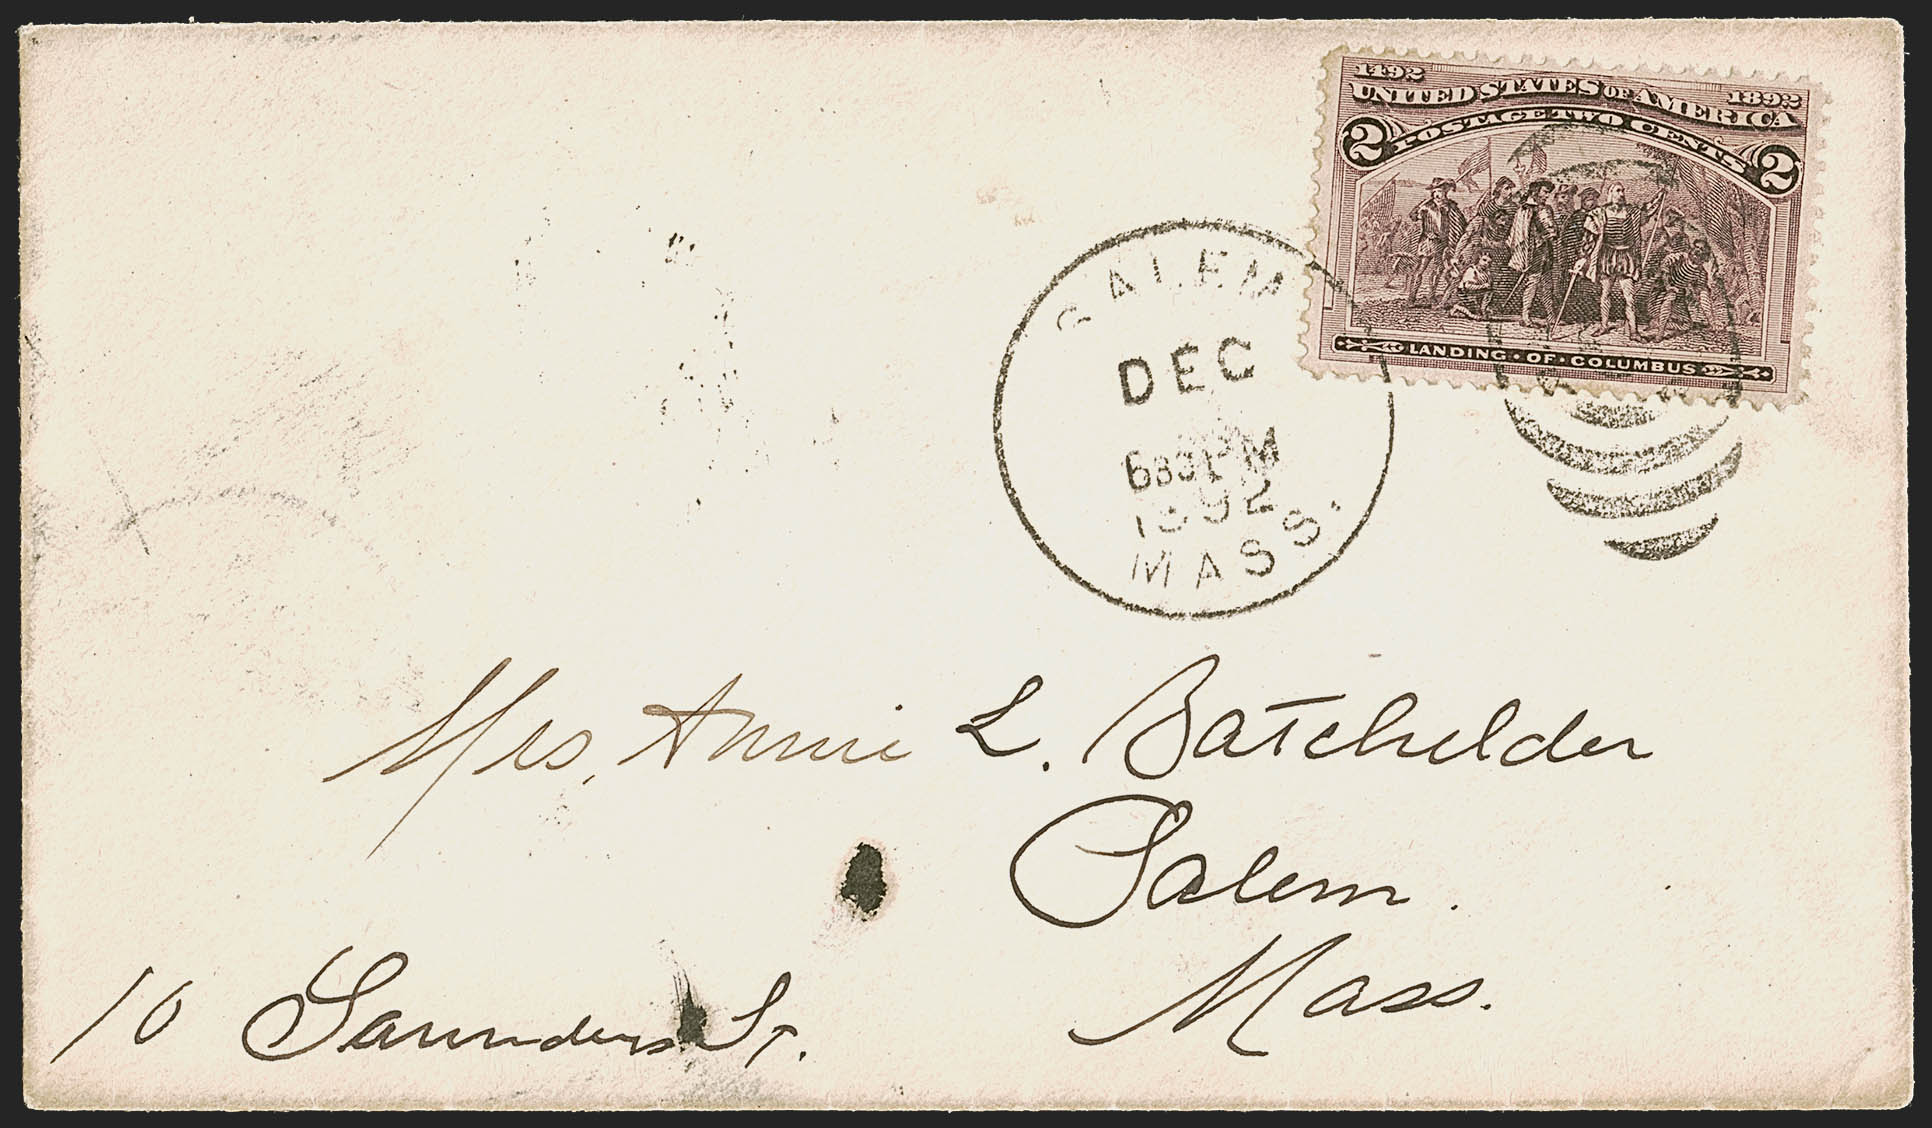 1492 1892
UNITED STATES OF AMERICA
POSTAGE TWO CENTS
2 2
LANDING · OF · COLUMBUS
SALEM
DEC
630 PM
1892
MASS.
Mrs. Annie L. Batchelder
Salem.
Mass.
10 Saunders St.